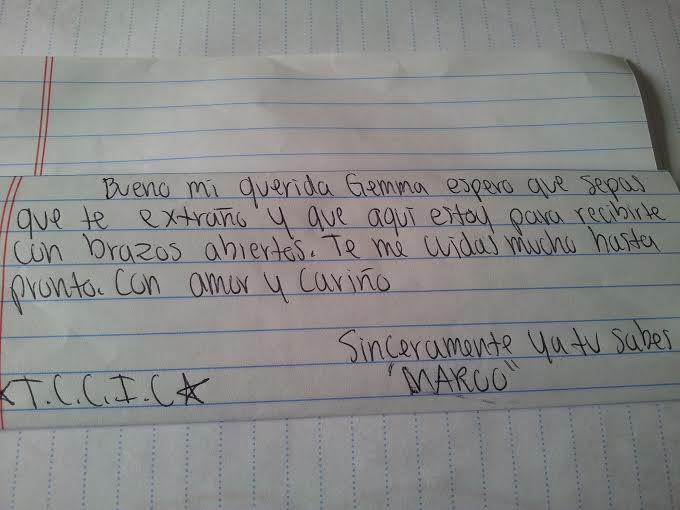 Bueno mi querida Gemma espero que sepas
que te extraño y que aqui estoy para recibirte
con brazos abiertos. Te me cuidas mucho hasta
pronto. Con amor y Cariño
Sinceramente ya tu sabes
"MARCO"
★T.C.C.I.C★